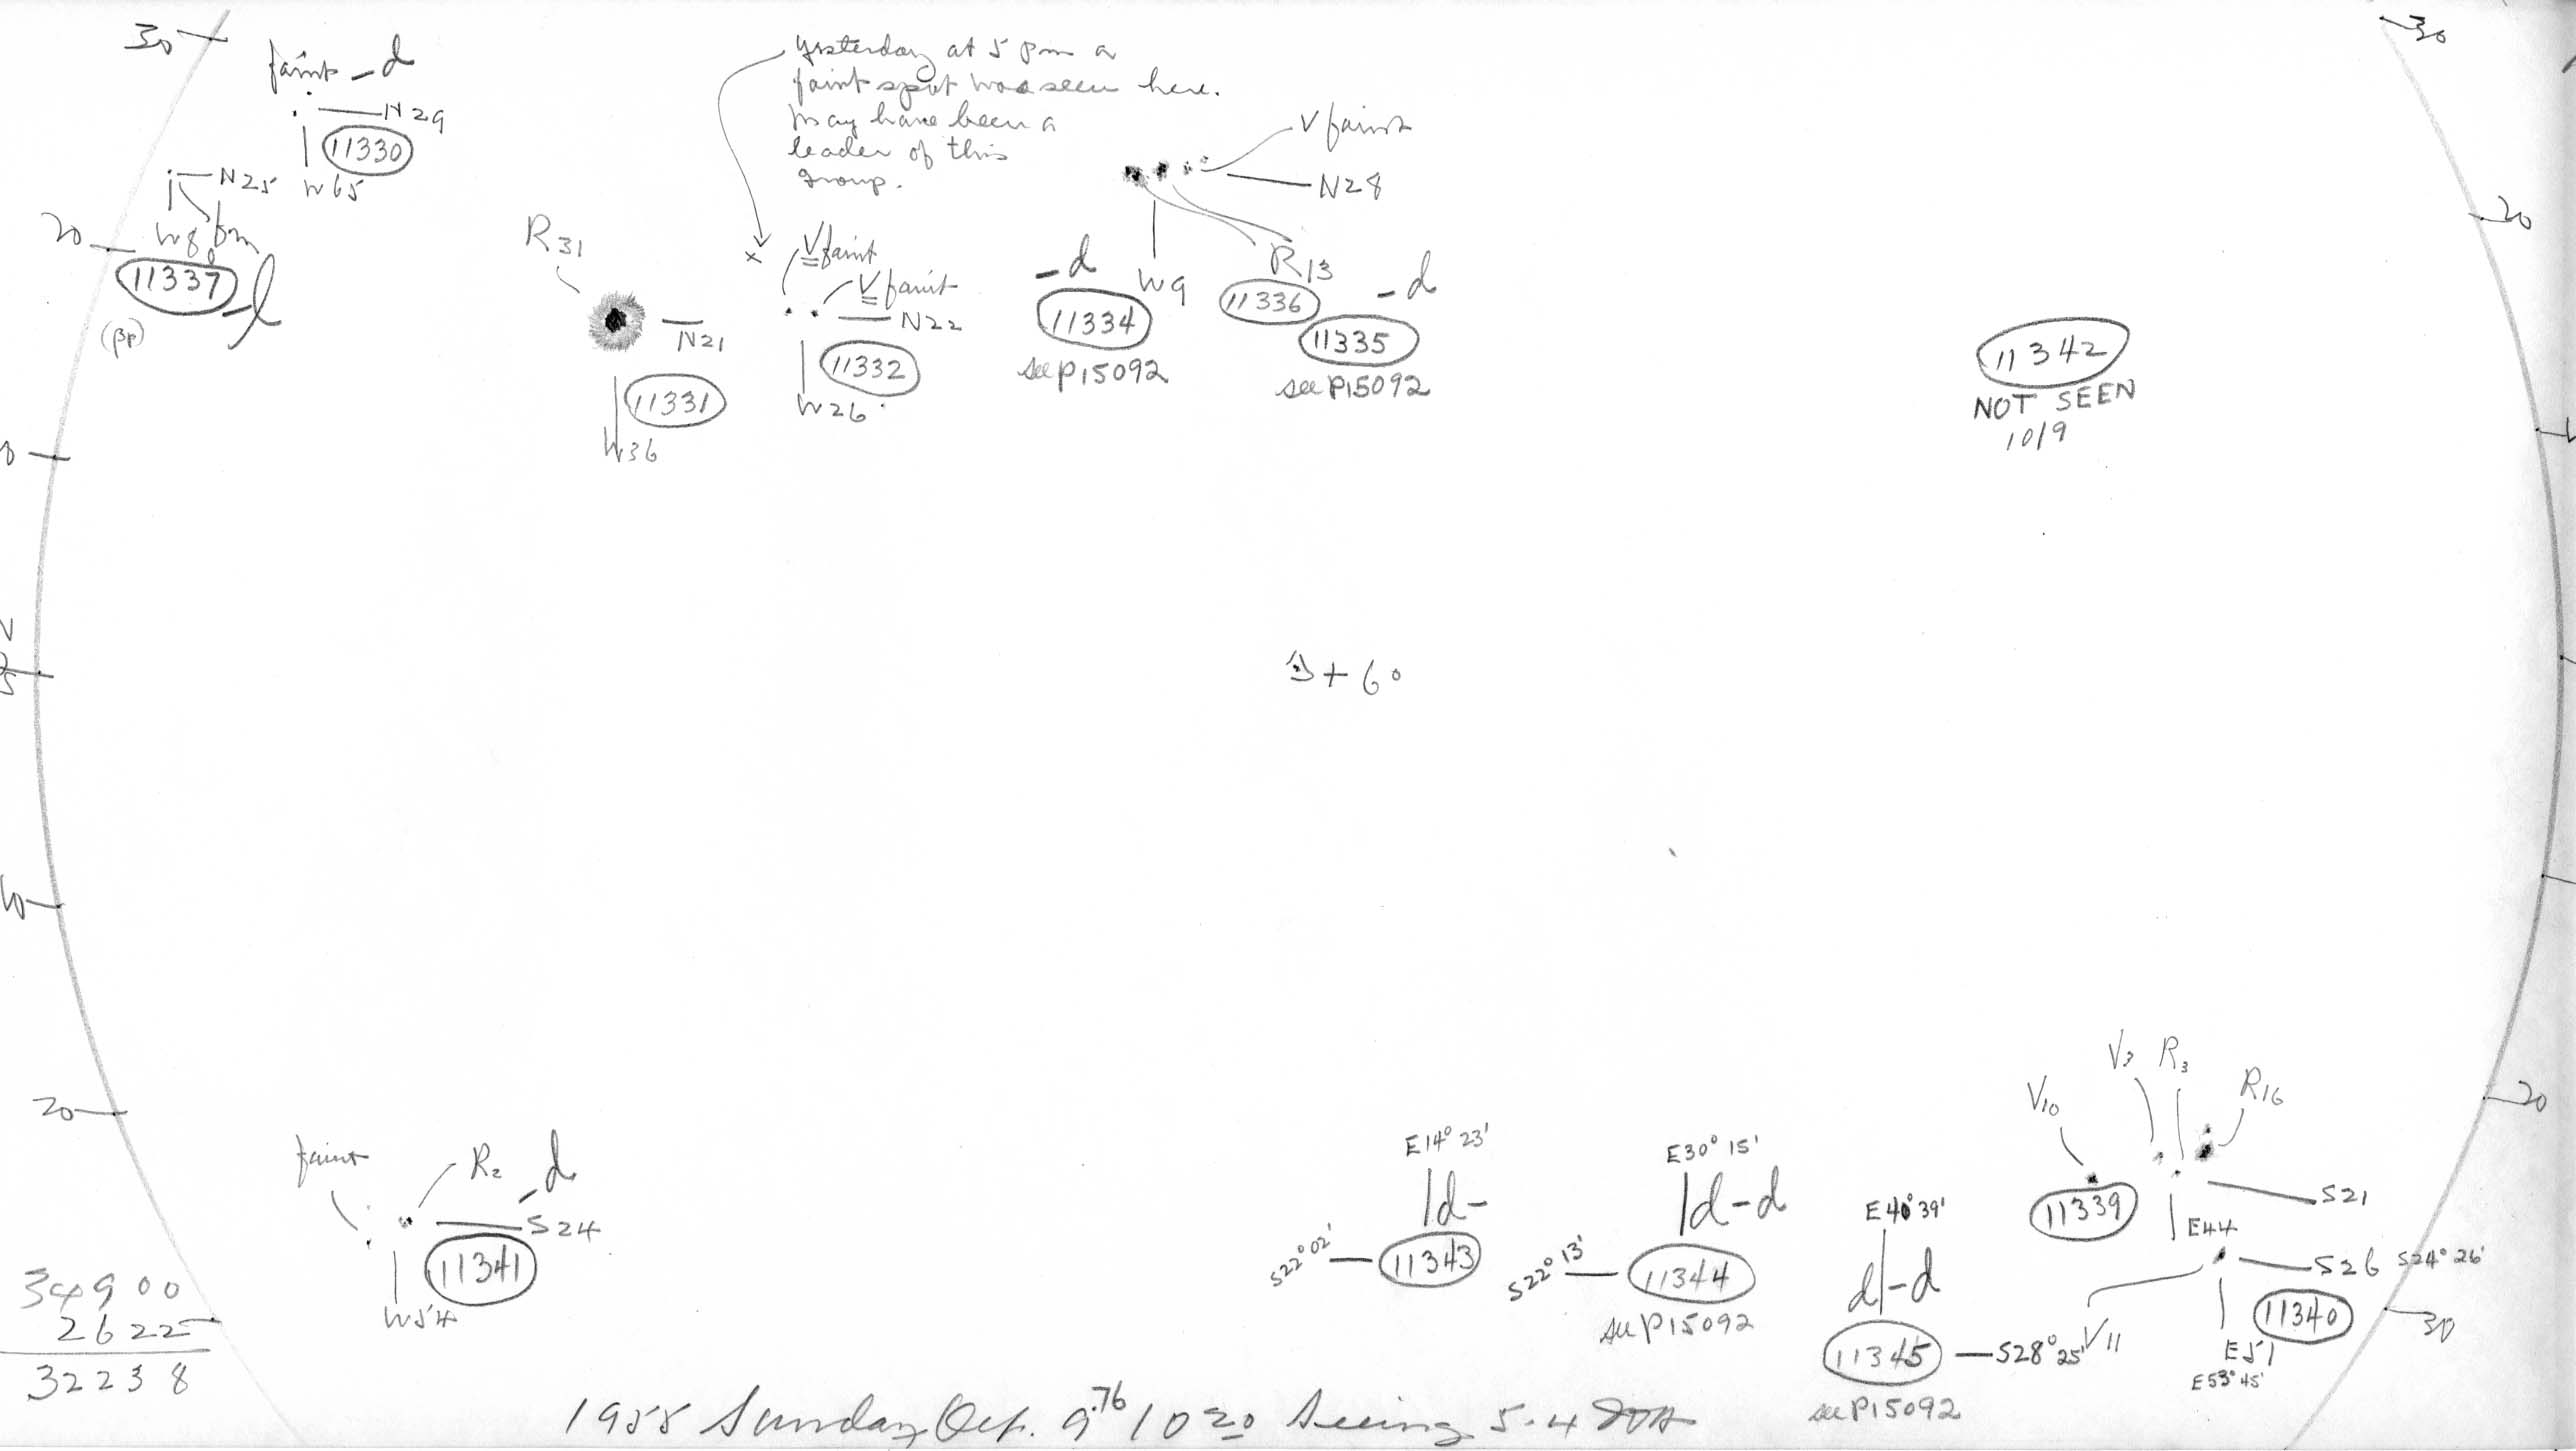 30
faint -d
N29
11330
W65
N25
W80
fm
20
11337
-l
(βp)
R31
N21
11331
W36
Yesterday at 5 pm a
faint spot was seen here.
May have been a
leader of this
group.
x
V faint
V faint
N22
11332
W26
V faint
N28
-d
W9
R13
11334
see P15092
11336
-d
11335
see P15092
30
20
11342
NOT SEEN
10/9
+6°
10
20
faint
R2
-d
S24
11341
W54
34900
2622
32238
E14° 23'
ld-
S22° 02'
11343
E30° 15'
ld-d
S22° 13'
11344
see P15092
E40° 39'
d|-d
11345
S28° 25'
see P15092
V10
V3
R3
R16
11339
S21
E44
S26
S24° 26'
11340
V11
E51
E53° 45'
20
30
1955 Sunday Oct. 9.76 10 20 Seeing 5.4